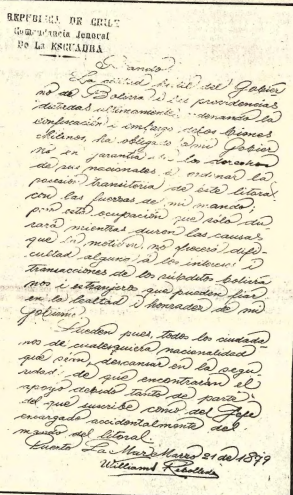 REPUBLICA DE CHILE
Comandancia Jeneral
De La ESCUADRA
Bando!
La actitud hostil del Gobier
no de Bolivia i las providencias
dictadas ultimamente ordenando la
confiscacion i embargo de los bienes
chilenos, ha obligado a mi Gobier
no en garantia de los derechos
de sus nacionales a ordenar la
posesion transitoria de este litoral
con las fuerzas de mi mando;
pero esta ocupacion que sólo du
rará mientras duren las causas
que la motivan, no ofrecerá difi
cultad alguna a los intereses i
transacciones de los súbditos bolivia
nos i estranjeros que pueden fiar
en la lealtad i honradez de mi
gobierno.
Pueden pues, todos los ciudada
nos de cualesquiera nacionalidad
que sean, descansar en la segu
ridad de que encontrarán el
apoyo debido tanto de parte
del que suscribe como del Jefe
encargado accidentalmente del
mando del litoral.
Puerto La Mar Marzo 21 de 1879
Williams Rebolledo